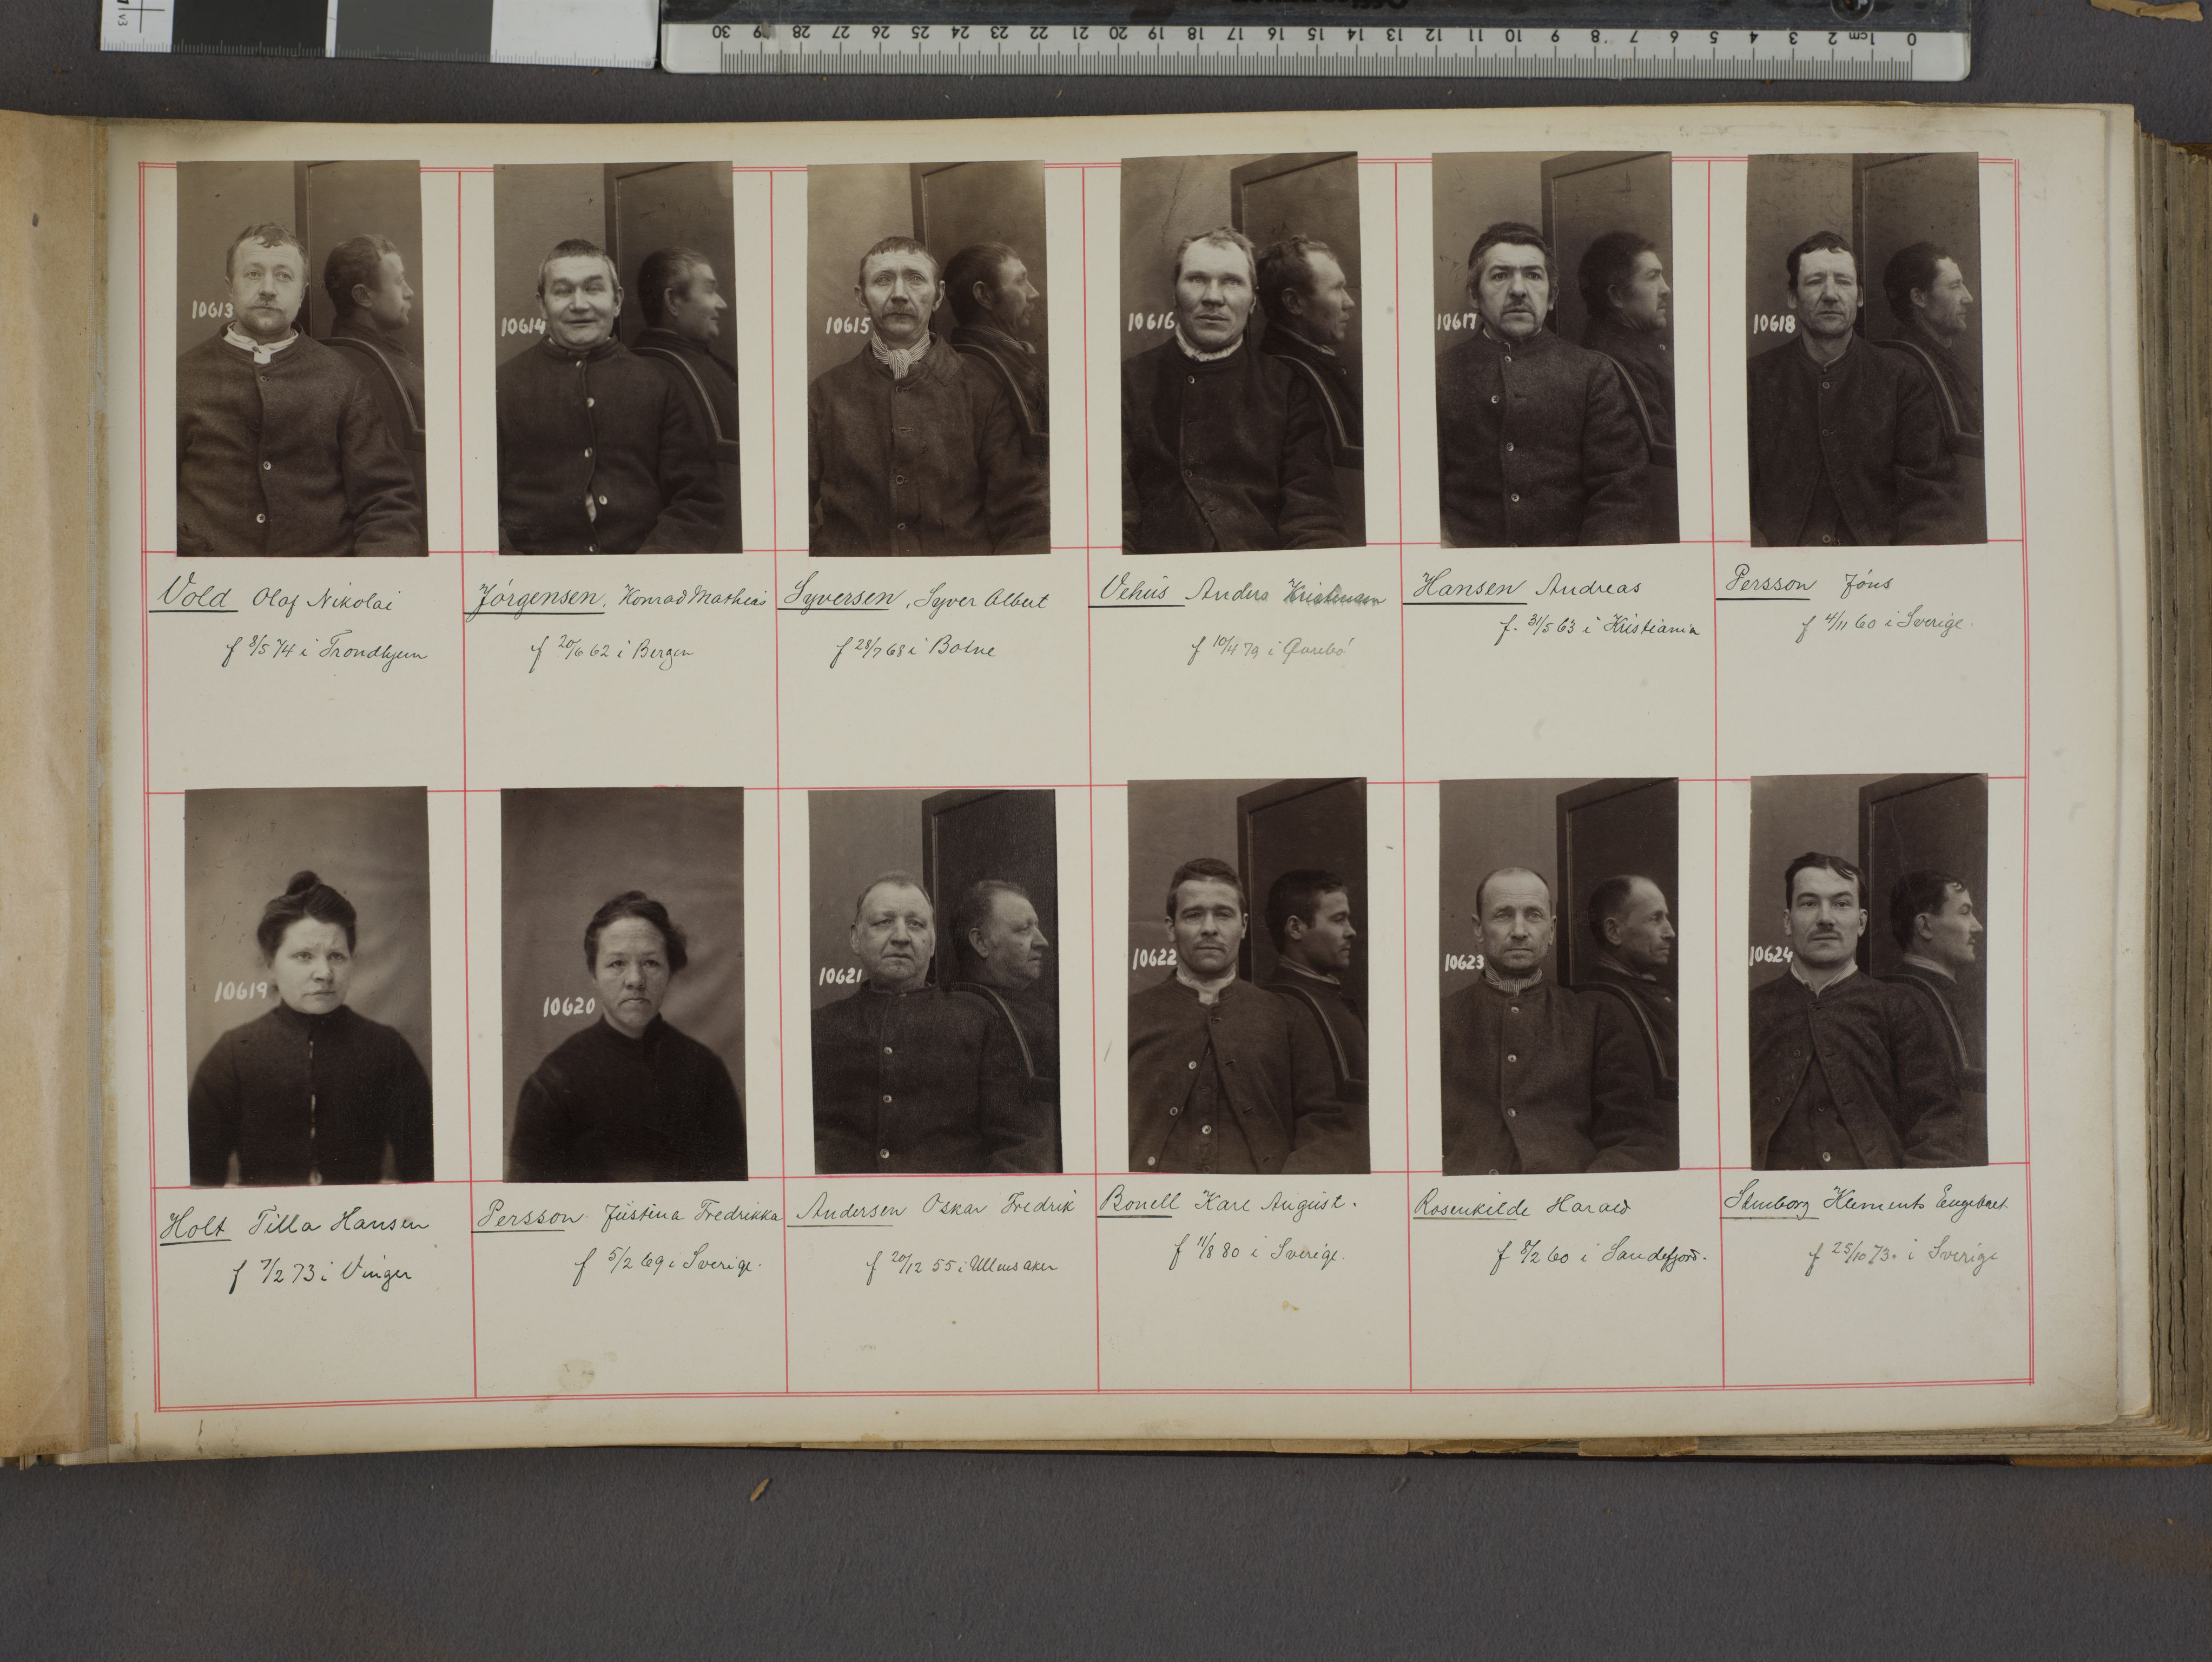 30 29 28 27 26 25 24 23 22 21 20 19 18 17 16 15 14 13 12 11 10 9 8 7 6 5 4 3 2 1cm 0
v3
10613
10614
10615
10616
10617
10618
Vold Olaf Nikolai
f 8/5 74 i Trondhjem
Jörgensen, Konrad Mathias
f 20/6 62 i Bergen
Syversen, Syver Albert
f 28/7 68 i Botne
Vehus Anders
f 10/4 79 i
Hansen Andreas
f. 31/5 63 i Kristiania
Persson Jöns
f 4/11 60 i Sverige.
10619
10620
10621
10622
10623
10624
Holt Tilla Hansen
f 7/2 73 i Vinger
Persson Justina Fredrikka
f 5/2 69 i Sverige.
Andersen Oskar Fredrik
f 20/12 55 i Ullensaker
Bonell Karl August.
f 11/8 80 i Sverige.
Rosenkilde Harald
f 8/2 60 i Sandefjord.
Klements
f 25/10 73. i Sverige